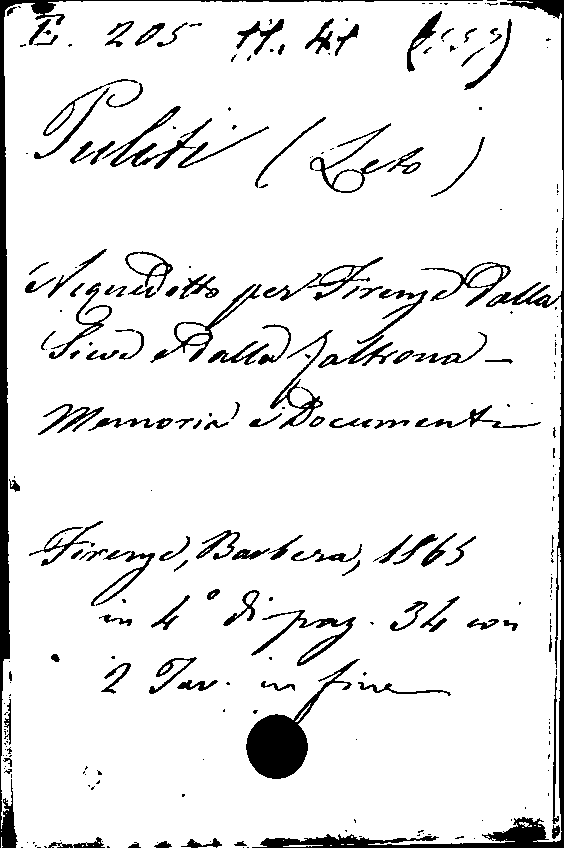 E. 205 11. 41
Puliti (Leto)
Acquedotto per Firenze dalla
Sieve e dalla Faltrona -
Memoria e Documenti
Firenze, Barbera, 1865
in 4° di pag. 34 con
2 Tav. in fine